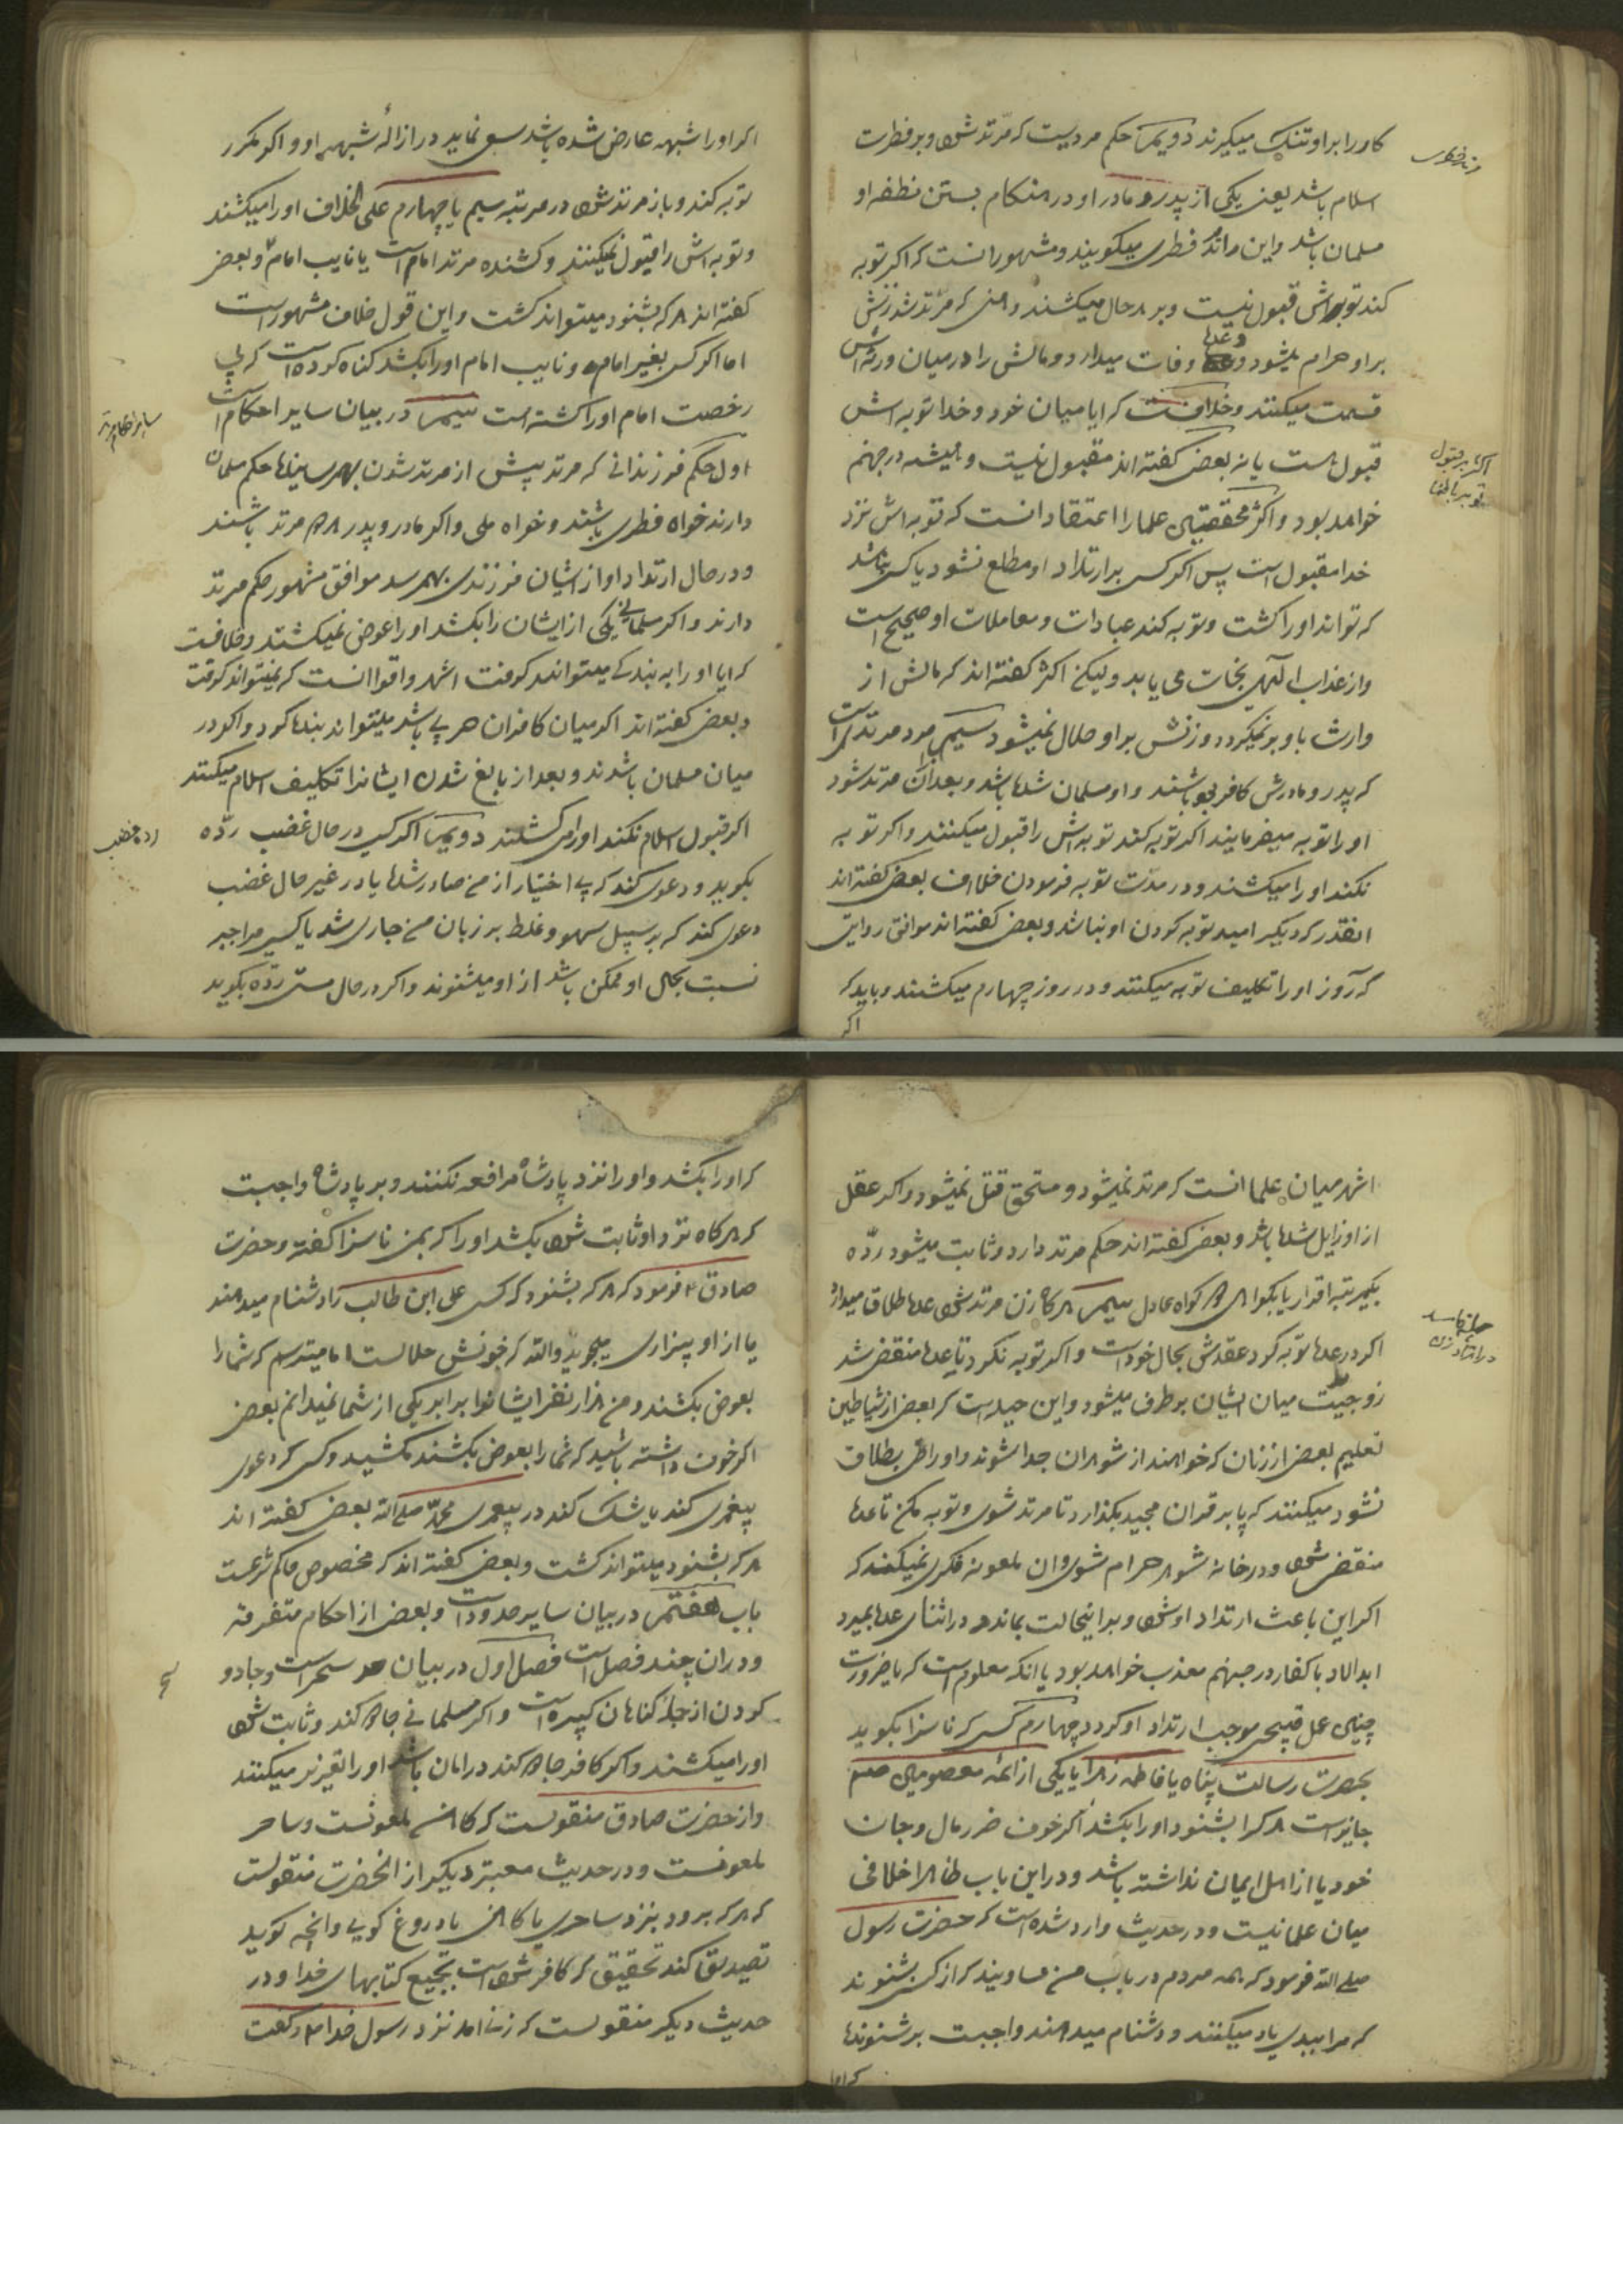 کار را بر او تنگ میگیرند دویم حکم مردیست که مرتد شود و بر فطرت
اسلام باشد یعنی یکی از پدر و مادر او در هنکام بستن نطفه او
مسلمان باشد و این را مرتد فطری میکویند و مشهور انست که اکر توبه
کند توبه اش قبول نیست و بر هر حال میکشند و همین که مرتد شد زنش
بر او حرام میشود و عده وفات میدارد و مالش را در میان ورثه اش
قسمت میکنند و خلافست که ایا میان خود و خدا توبه اش
قبول هست یا نه بعضی کفته اند مقبول نیست و همیشه در جهنم
خواهد بود و اکثر محققین علما را اعتقاد انست که توبه اش نزد
خدا مقبول است پس اکر کسی بر ارتداد او مطلع نشود یا کسی نباشد
که تواند او را کشت و توبه کند عبادات و معاملات او صحیح است
و از عذاب الهی نجات می یابد و لیکن اکثر کفته اند که مالش از
وارث باو بر نمیکردد و زنش بر او حلال نمیشود سیم مرد مرتد ملی است
که پدر و مادرش کافر بوده باشند و او مسلمان شده باشد و بعد ازان مرتد شود
او را توبه میفرمایند اکر توبه کند توبه اش را قبول میکنند و اکر توبه
نکند او را میکشند و در مدت توبه فرمودن خلاف بعضی کفته اند
انقدر که دیکر امید توبه کردن او نباشد و بعضی کفته اند موافق روایتی
که سه روز او را تکلیف توبه میکنند و در روز چهارم میکشند و باید که
اکر
اکثر بر قبول
اکر او را شبهه عارض شده باشد سعی نماید در ازالهٔ شبهه او و اکر مکرر
توبه کند و باز مرتد شود در مرتبه سیم یا چهارم علی الخلاف او را میکشند
و توبه اش را قبول نمیکنند و کشنده مرتد امام است یا نایب امام و بعضی
کفته اند هر که بشنود میتواند کشت و این قول خلاف مشهور است
اما اکر کسی بغیر امام و نایب امام او را بکشد کناه کرده است که بی
رخصت امام او را کشته است سیم در بیان سایر احکام است
اول حکم فرزندانی که مرتد پیش از مرتد شدن بهم رسانیده حکم مسلمان
دارند خواه فطری باشند و خواه ملی و اکر مادر و پدر هر دو مرتد باشند
و در حال ارتداد او از ایشان فرزندی بهم رسد موافق مشهور حکم مرتد
دارند و اکر مسلمانی یکی از ایشان را بکشد او را عوض نمیکشند و خلافست
که ایا او را به بندکی میتوانند کرفت اشهر و اقوا انست که نمیتواند کرفت
و بعضی کفته اند اکر میان کافران حربی باشد میتواند بنده کرد و اکر در
میان مسلمان باشد نه و بعد از بالغ شدن ایشانرا تکلیف اسلام میکنند
اکر قبول اسلام نکنند او را میکشند دویم اکر کسی در حال غضب ردّه
بکوید و دعوی کند که بی اختیار از من صادر شده یا در غیر حال غضب
دعوی کند که بر سبیل سهو و غلط بر زبان من جاری شد یا کسی مرا جبر
نسبت بحال او ممکن باشد از او میشنوند و اکر در حال مستی ردّه بکوید
سایر احکام مرتد
اشهر میان علما انست که مرتد نمیشود و مستحق قتل نمیشود و اکر عقل
از او زایل شده باشد و بعضی کفته اند حکم مرتد دارد و ثابت میشود ردّه
بیکمرتبه اقرار یا بکواهی دو کواه عادل سیم هر کاه زن مرتد شود عده طلاق میدارد
اکر در عده توبه کرد عقدش بحال خود است و اکر توبه نکرد تا عده منقضی شد
زوجیت میان ایشان برطرف میشود و این حیله است که بعضی از شیاطین
تعلیم بعضی از زنان که خواهند از شوهران جدا شوند و او راضی بطلاق
نشود میکنند که پا بر قران مجید بکذارد تا مرتد شوی و توبه مکن تا عده
منقضی شود و در خانه شوهر حرام شوی و ان ملعونه فکری نمیکند که
اکر این باعث ارتداد او شود و بر اینحالت بماند و در اثنای عده بمیرد
ابد الاباد با کفار در جهنم معذب خواهد بود با انکه معلوم است که با ضرورت
چنین عمل قبیحی موجب ارتداد او کردد چهارم کسی که ناسزا بکوید
بحضرت رسالت پناه یا فاطمه زهرا یا یکی از ائمه معصومین
جایز است هر که را بشنود او را بکشد اکر خوف ضرر مال و جان
خود یا از اهل ایمان نداشته باشد و در این باب ظاهرا خلافی
میان علما نیست و در حدیث وارد شده است که حضرت رسول
صلی الله فرمود که همه مردم در باب من مساویند که از کسی بشنوند
که مرا ببدی یاد میکنند و دشنام میدهند واجبست بر شنونده
که او را
که او را بکشد و او را نزد پادشاه مرافعه نکنند و بر پادشاه واجبست
که هر کاه نزد او ثابت شود بکشد او را که بمن ناسزا کفته و حضرت
صادق ع فرمود که هر که بشنود که کسی علی ابن طالب را دشنام میدهند
یا از او بیزاری میجوید والله که خونش حلالست اما میترسم که شما را
بعوض بکشند و من هزار نفر ایشانرا برابر یکی از شما نمیدانم بعضی
اکر خوف داشته باشید که شما را بعوض بکشند مکشید و کسی که دعوی
پیغمبری کند یا شک کند در پیغمبری محمد صلی الله بعضی کفته اند
هر که بشنود میتواند کشت و بعضی کفته اند که مخصوص حاکم شرعست
باب هفتم در بیان سایر حدود است و بعضی از احکام متفرقه
و در ان چند فصل است فصل اول در بیان سحر است و جادو
کردن از جمله کناهان کبیره است و اکر مسلمانی جادو کند و ثابت شود
او را میکشند و اکر کافر جادو کند در امان باشد او را تعزیر میکنند
و از حضرت صادق منقولست که کاهن ملعونست و ساحر
ملعونست و در حدیث معتبر دیکر از انحضرت منقولست
که هر که برود بنزد ساحری یا کاهنی یا دروغ کویی و انچه کوید
تصدیق کند تحقیق که کافر شده است بجمیع کتابهای خدا و در
حدیث دیکر منقولست که زنی امد نزد رسول خدا و کفت